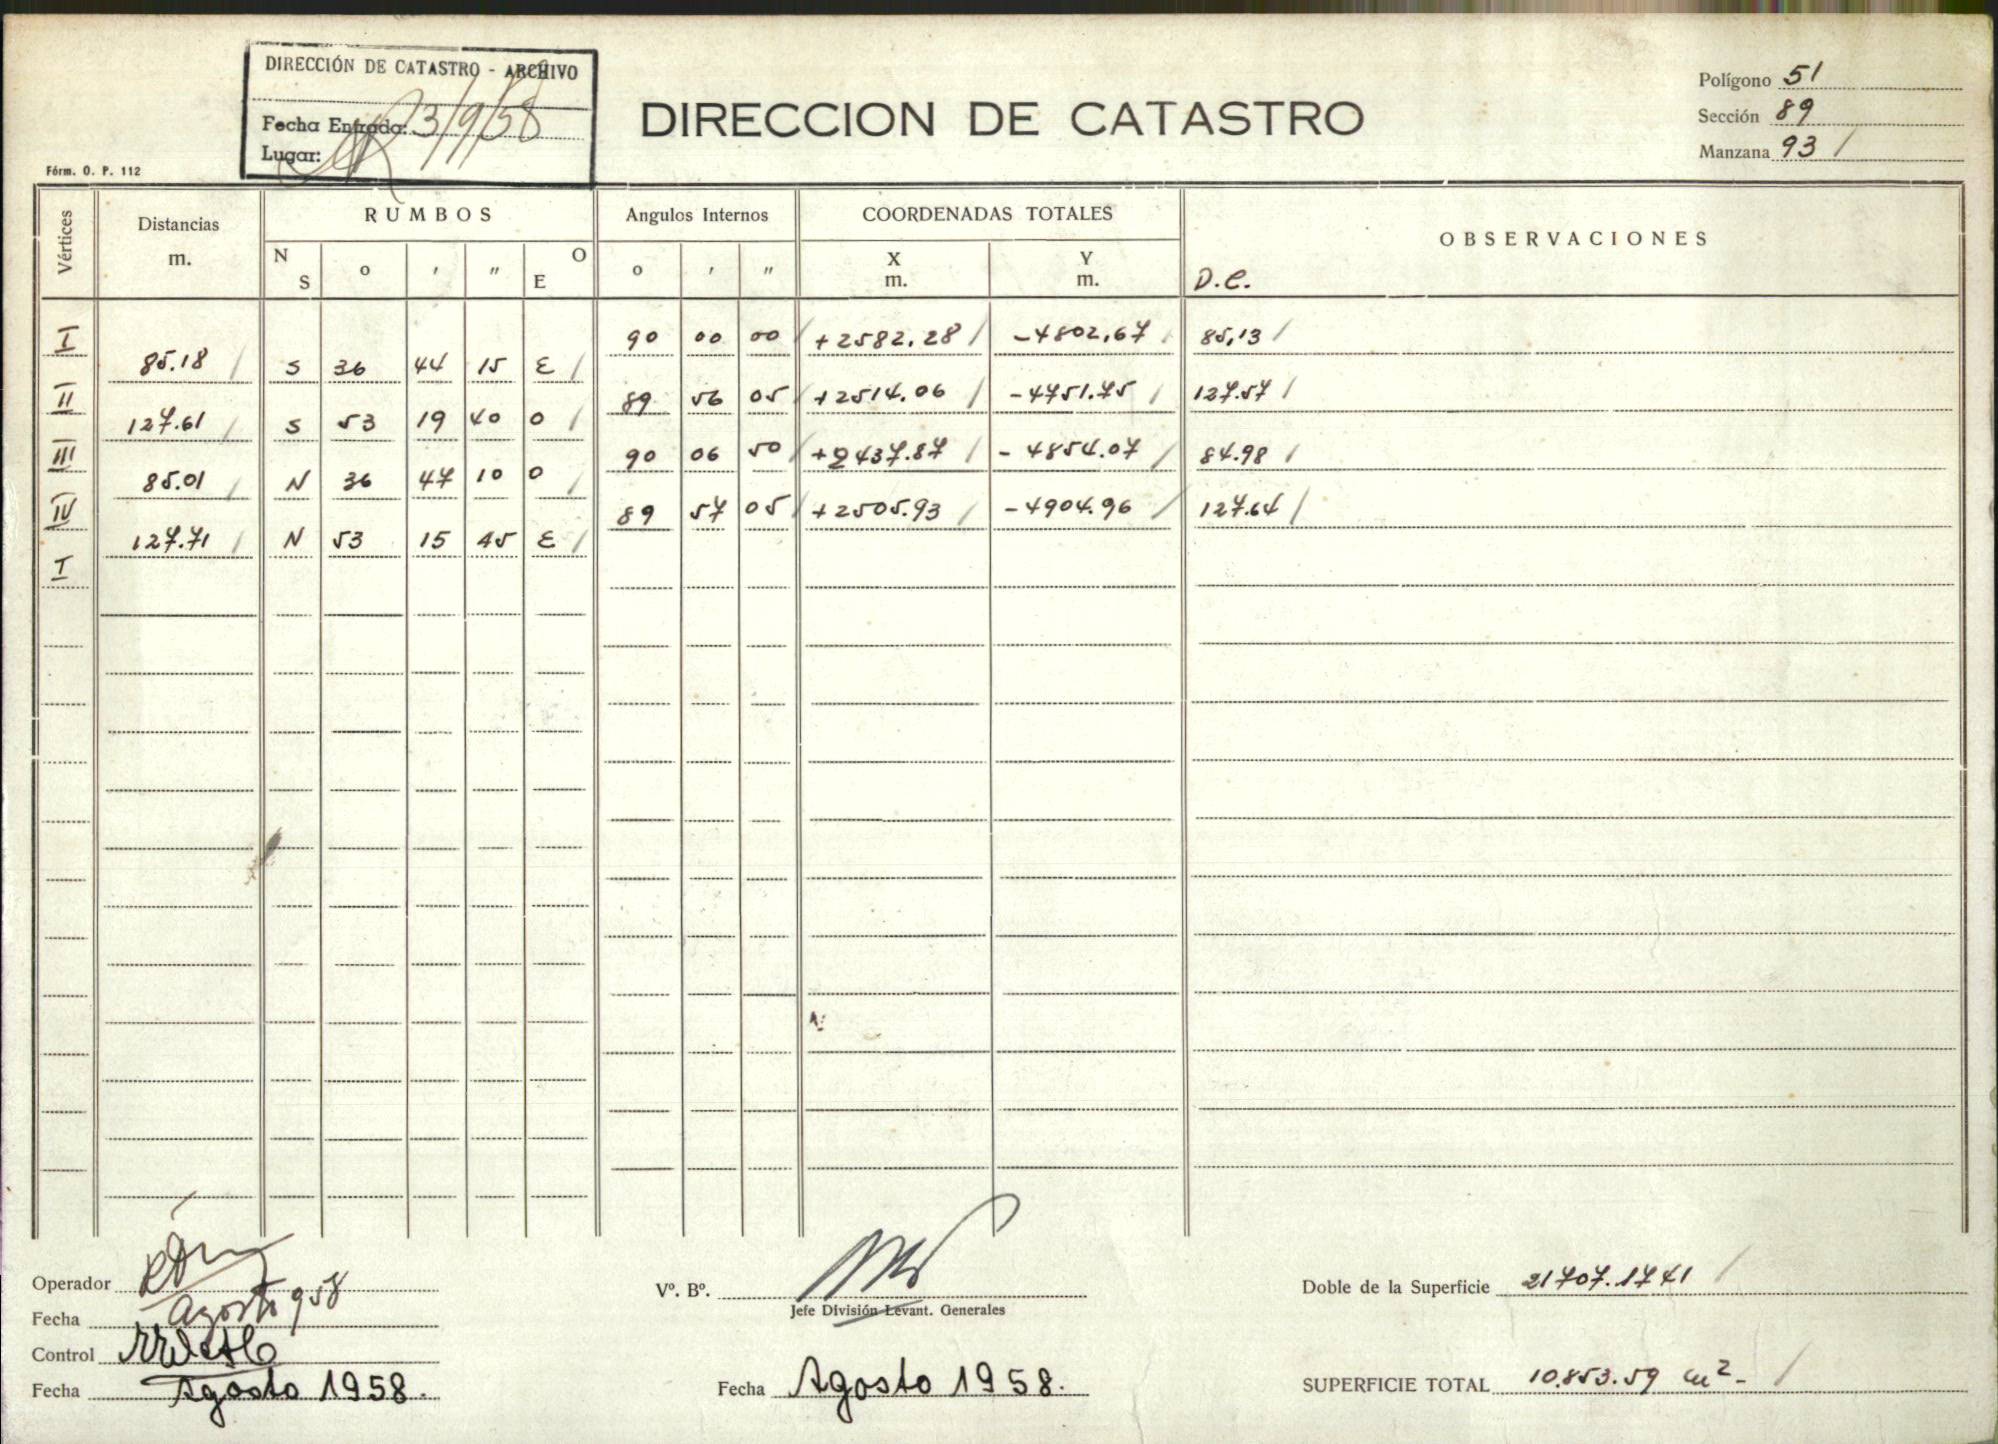 DIRECCIÓN DE CATASTRO - ARCHIVO
Fecha Entrada: 3/9/58
Lugar:
DIRECCION DE CATASTRO
Polígono 51
Sección 89
Manzana 93 /
Fórm. O. P. 112
Vértices Distancias m. RUMBOS Angulos Internos COORDENADAS TOTALES OBSERVACIONES
N S o ' " O E o ' " X m. Y m. D.C.
I 90 00 00 / +2582.28 / -4802,67 / 85,13 /
85.18 / S 36 44 15 E /
II 89 56 05 / +2514.06 / -4751.75 / 127.57 /
127.61 / S 53 19 40 O /
III 90 06 50 / +2437.87 / -4854.07 / 84.98 /
85.01 / N 36 47 10 O /
IV 89 57 05 / +2505.93 / -4904.96 / 127.64 /
127.71 / N 53 15 45 E /
I
Operador
Fecha Agosto 958
Control
Fecha Agosto 1958.
Vº. Bº.
Jefe División Levant. Generales
Fecha Agosto 1958.
Doble de la Superficie 21707.1741 /
SUPERFICIE TOTAL 10.853.59 m2- /